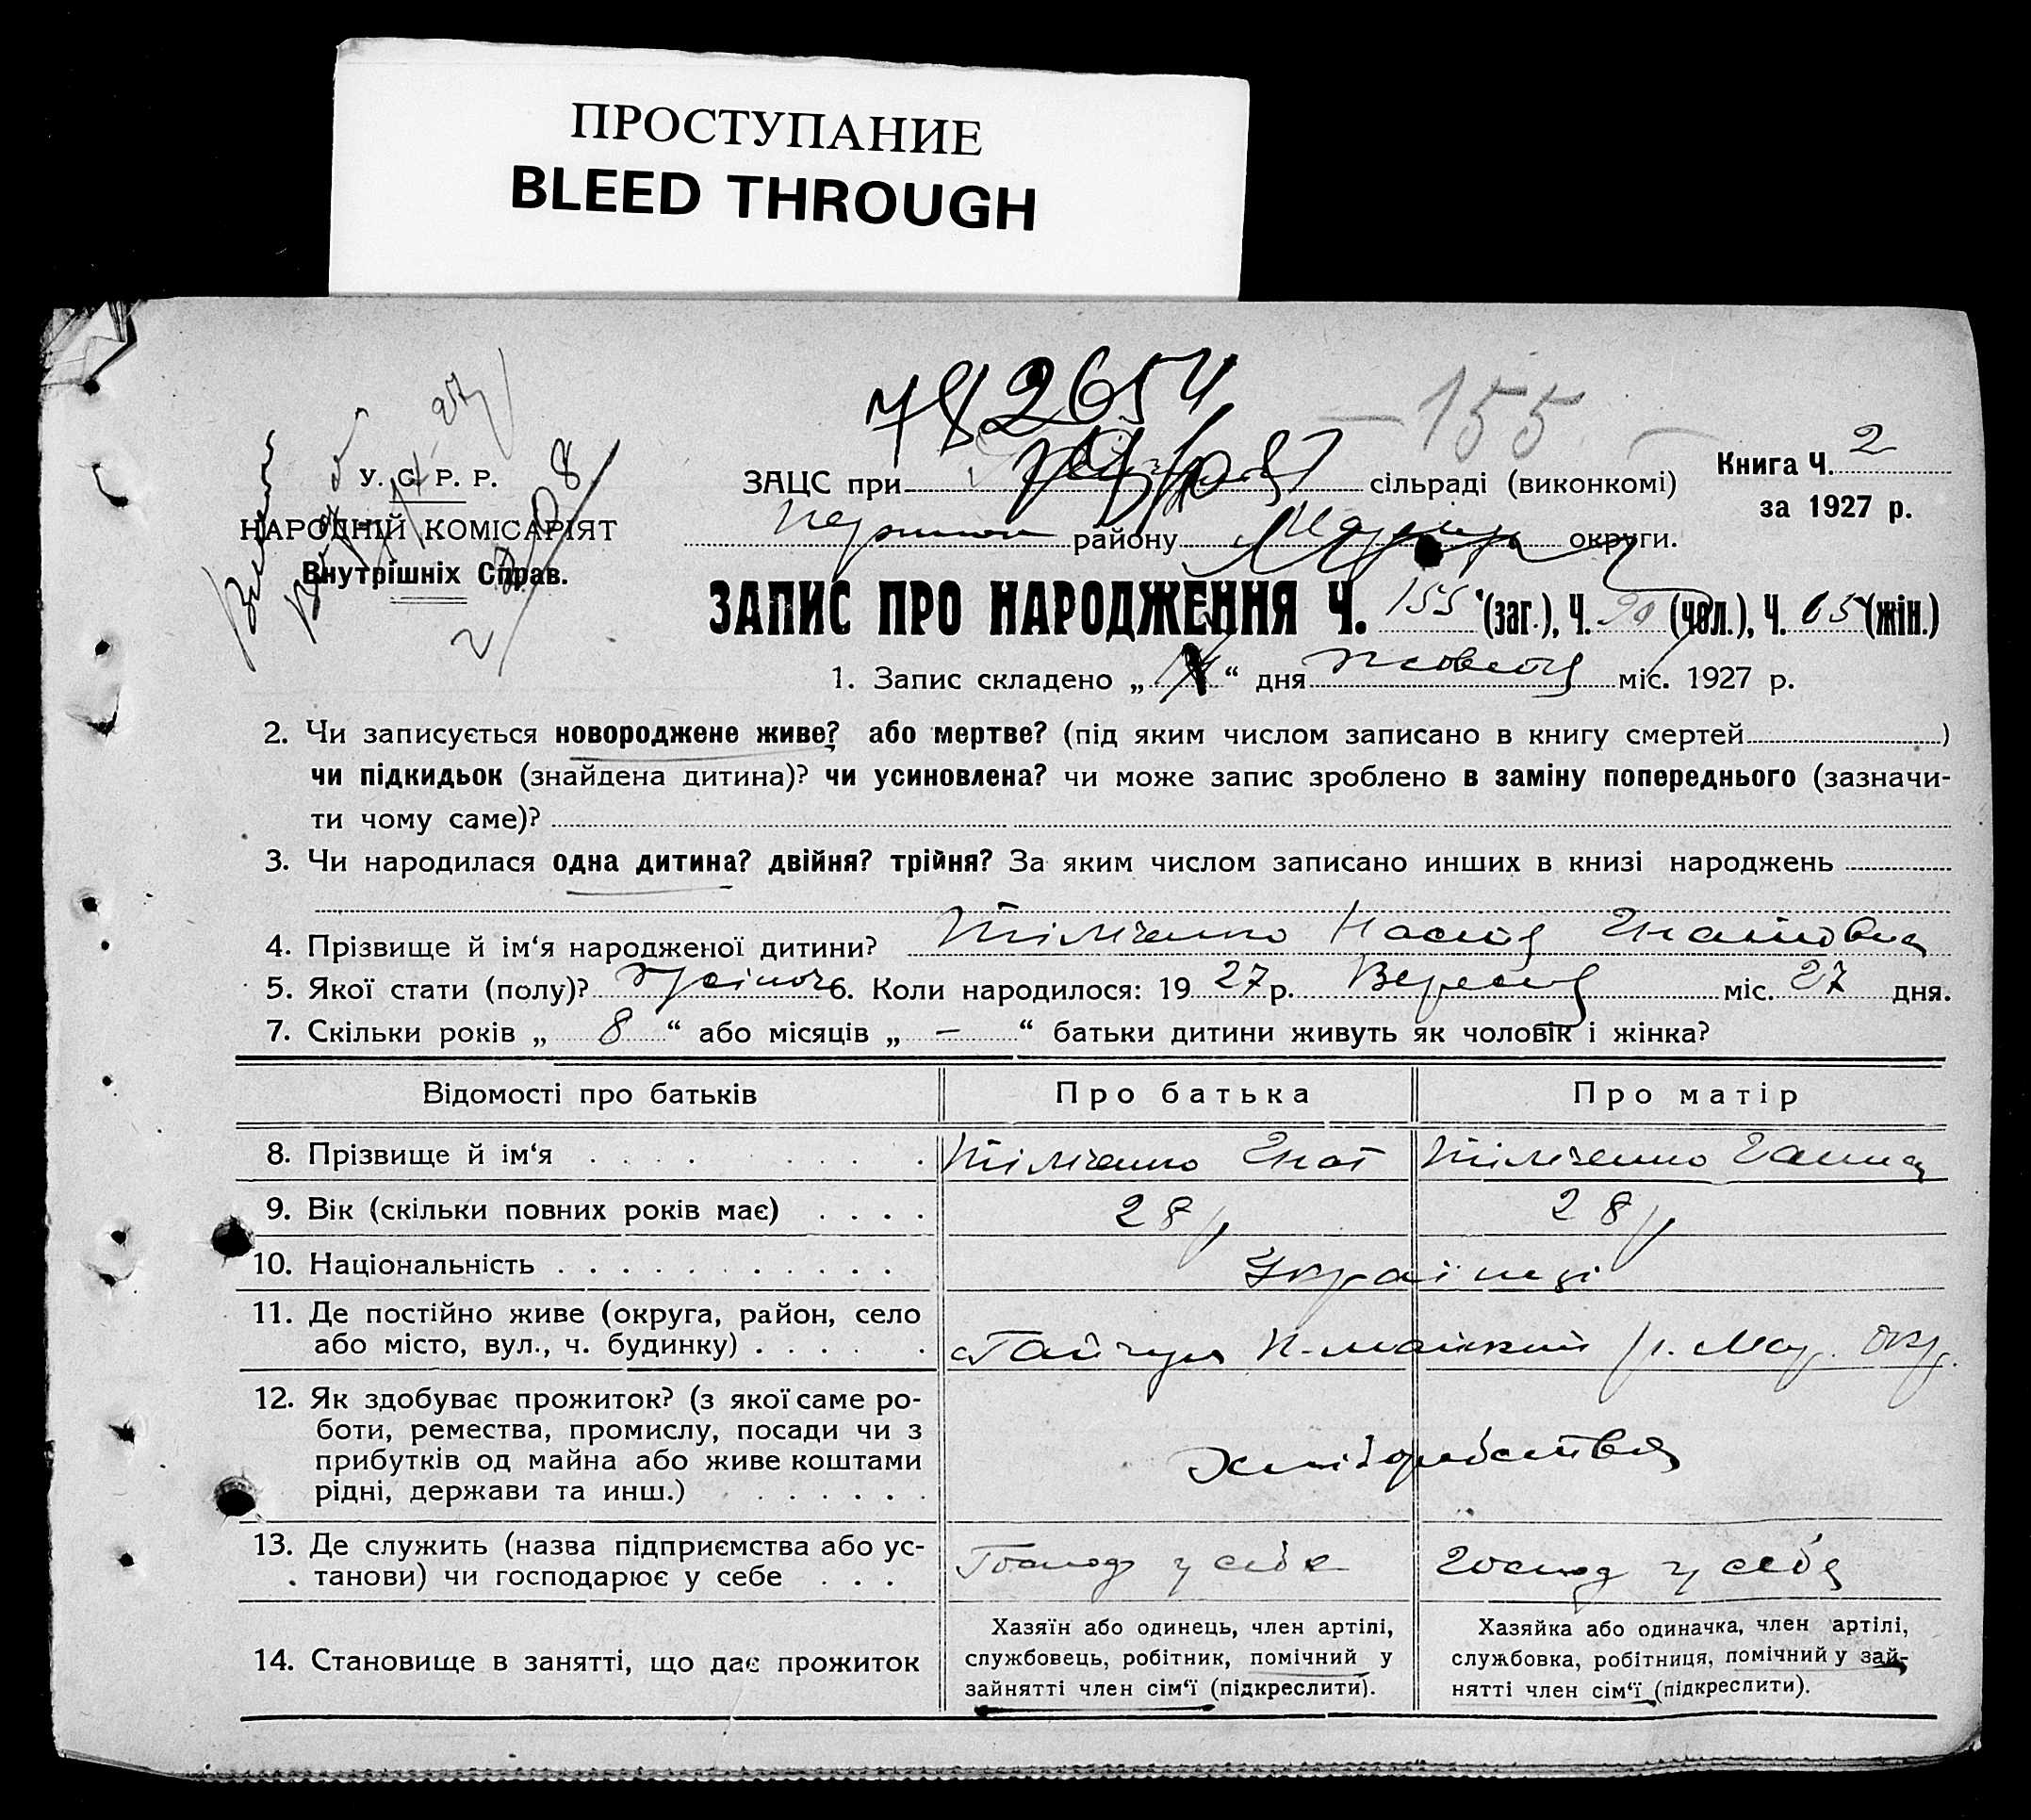 ПРОСТУПАНИЕ
BLEED THROUGH
782654
-155-
У. С. Р. Р.
НАРОДНІЙ КОМІСАРІЯТ
Внутрішніх Справ.
Книга Ч. 2
за 1927 р.
ЗАЦС при сільраді (виконкомі)
району округи.
ЗАПИС ПРО НАРОДЖЕННЯ Ч. 155 (заг.), Ч. 90 (чол.), Ч. 65 (жін.)
1. Запис складено „ “ дня жовтня міс. 1927 р.
2. Чи записується новороджене живе? або мертве? (під яким числом записано в книгу смертей )
чи підкидьок (знайдена дитина)? чи усиновлена? чи може запис зроблено в заміну попереднього (зазначи-
ти чому саме)?
3. Чи народилася одна дитина? двійня? трійня? За яким числом записано инших в книзі народжень
4. Прізвище й ім‘я народженої дитини? Тімченко Настя Гнатовна
5. Якої стати (полу)? жіноч 6. Коли народилося: 19 27 р. Вересня міс. 27 дня.
7. Скільки років „ 8 “ або місяців „ — “ батьки дитини живуть як чоловік і жінка?
Відомості про батьків Про батька Про матір
8. Прізвище й ім‘я Тімченко Гнат Тімченко Ганна
9. Вік (скільки повних років має) 28 р 28 р
10. Національність Українці
11. Де постійно живе (округа, район, село
або місто, вул., ч. будинку) с Гайчул П-майский р. Мар. окр.
12. Як здобуває прожиток? (з якої саме ро-
боти, ремества, промислу, посади чи з
прибутків од майна або живе коштами
рідні, держави та инш.) хліборобства
13. Де служить (назва підприємства або ус-
танови) чи господарює у себе Господ у себе Господ у себе
14. Становище в занятті, що дає прожиток
Хазяїн або одинець, член артілі,
службовець, робітник, помічний у
зайнятті член сім‘ї (підкреслити).
Хазяйка або одиначка, член артілі,
службовка, робітниця, помічний у зай-
нятті член сім‘ї (підкреслити).